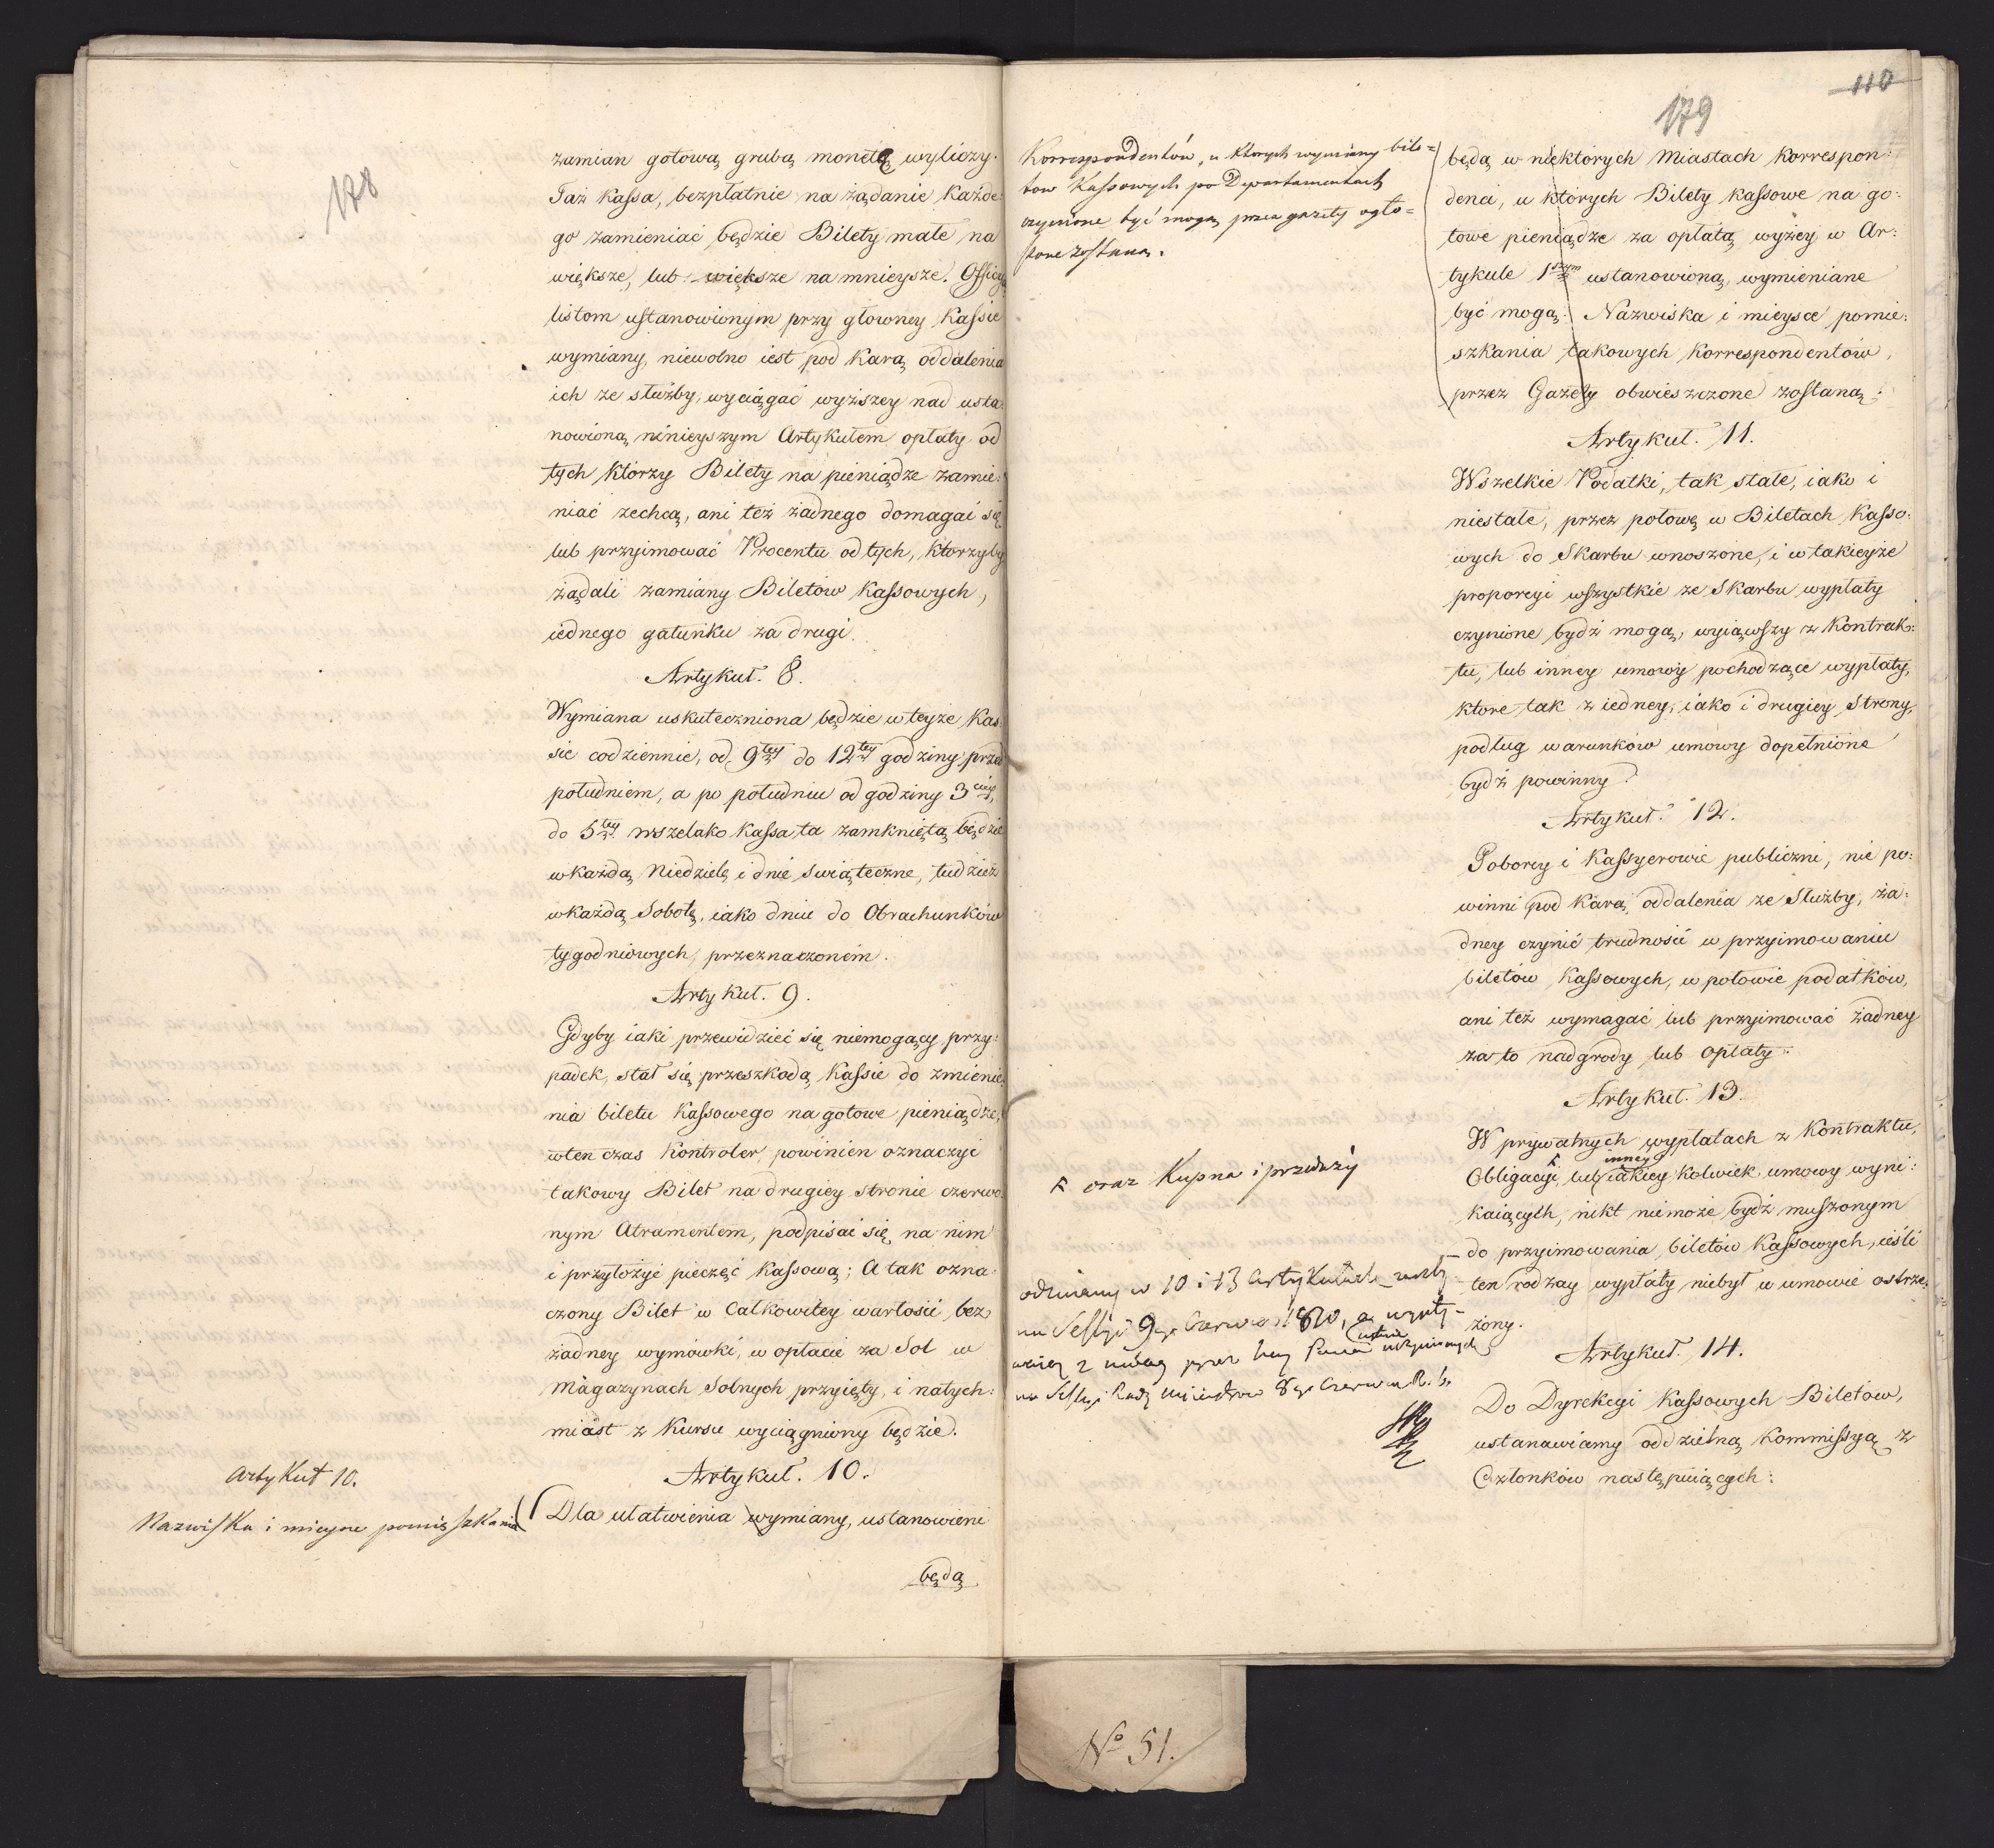 178
zamian gotową grubą monetę wyliczy.
Taż kassa, bezpłatnie na żądanie każde:
go zamieniać będzie Bilety małe na
większe, lub większe na mnieysze. Officya
listom ustanowionym przy głowney Kassie
wymiany, niewolno iest pod karą oddalenia
ich ze służby, wyciągać wyższey nad usta:
nowioną ninieyszym Artykułem opłaty od
tych ktorzy Bilety na pieniądze zamie:
niać zechcą, ani też żadnego domagać się
lub przyimować Procentu od tych, ktorzyby
żądali zamiany Biletow kassowych,
iednego gatunku za drugi.
Artykuł. 8.
Wymiana uskuteczniona będzie w teyże Kas:
sie codziennie, od 9tey do 12tey godziny przed
południem, a po południu od godziny 3ciey,
do 5tey wszelako Kassa ta zamknięta będzie
w każdą Niedzielę i dnie swiąteczne, tudzież
w każdą Sobotę, iako dniu do Obrachunków
tygodniowych, przeznaczonem.
Artykuł. 9.
Gdyby iaki przewidzieć się niemogący przy:
padek, stał się przeszkodą Kassie do zmienie:
nia biletu Kassowego na gotowe pieniądze,
wten czas Kontroler, powinien oznaczyć
takowy Bilet na drugiey stronie czerwo:
nym Atramentem, podpisać się na nim
i przyłożyć pieczęć Kassową; A tak ozna:
czony Bilet w Całkowitey wartości bez
żadney wymówki, w opłacie za Sol w
Magazynach Solnych przyięty, i natych:
miast z Kursu wyciągniony będzie.
Artykuł. 10.
Dla ułatwienia wymiany, ustanowieni
będą
Artykuł 10.
Nazwiska i mieysce pomięszkania
110
179
Korrespondentów, u których wymiany bile=
tow Kassowych po Departamentach
czynione być mogą przez gazety ogło=
szone zostaną.
będą w niektórych Miastach Korrespon:
denci, u których Bilety kassowe na go:
towe pieniądze za opłatą wyżey w Ar:
tykule 1szym ustanowioną, wymieniane
być mogą. Nazwiska i mieysce pomie:
szkania takowych Korrespondentów,
przez Gazety obwieszczone zostaną.
Artykuł. 11.
Wszelkie Podatki, tak stałe, iako i
niestałe, przez połowę w Biletach Kasso:
wych do Skarbu wnoszone, i w takieyże
proporcyi wszystkie ze Skarbu wypłaty
czynione bydź mogą, wyiąwszy z Kontrak:
tu, lub inney umowy pochodzące wypłaty,
ktore tak z iedney, iako i drugiey Strony,
podług warunków umowy dopełnione
bydź powinny.
Artykuł. 12.
Poborcy i Kassyerowie publiczni, nie po:
winni pod karą, oddalenia ze Służby, ża:
dney czynić trudności w przyimowaniu
biletów Kassowych, w połowie podatków,
ani też wymagać lub przyimować żadney
za to nadgrody lub opłaty.
Artykuł. 13.
W prywatnych wypłatach z Kontraktu,
inney
Obligacyi, lub iakiey kolwiek umowy wyni:
kaiących, nikt niemoże bydź muszonym
do przyimowania biletów Kassowych, ieśli
ten rodzay wypłaty niebył w umowie ostrze:
żony.
oraz Kupna i przedaży
odmiany w 10 i 13 Artykułach zaszły
na Sessyi 9go Czerwca 1810,
na Sessyi Rady Ministrow 8go Czerwca R. b.
Artykuł. 14.
Do Dyrekcyi Kassowych Biletow,
ustanawiamy oddzielną Kommissyą z
Członków następuiących:
No 51.